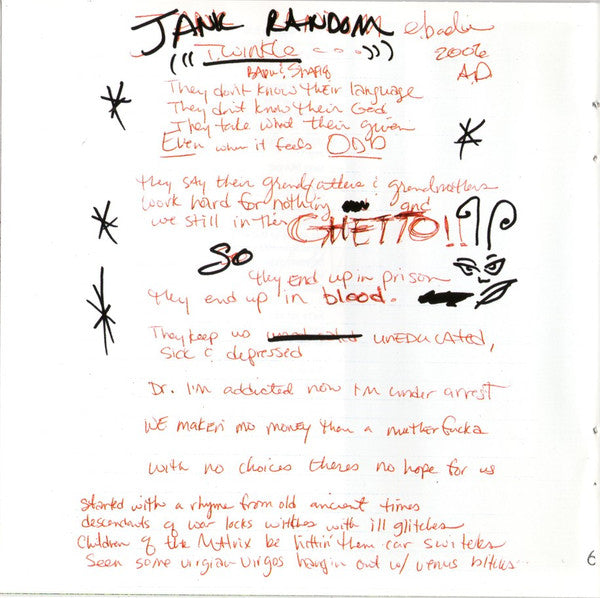 JANK RANDOM
Twinkle ...
2006
BADU & SHAFIQ
A.D
They don't know their language
They don't know their God
They take what their given
Even when it feels ODD
they say their grandfathers & grandmothers
work hard for nothing and
we still in their GHETTO!!
So
they end up in prison
they end up in blood.
They keep us UNEDUCATED,
sick & depressed
Dr. I'm addicted now I'm under arrest
WE maken mo money than a mutherfucka
with no choices theres no hope for us
Started with a rhyme from old ancient times
descendants of war locks witches with ill glitches
Children of the Matrix be hittin them car switches
Seen some virgian virgos hangin out w/ venus bitches
6